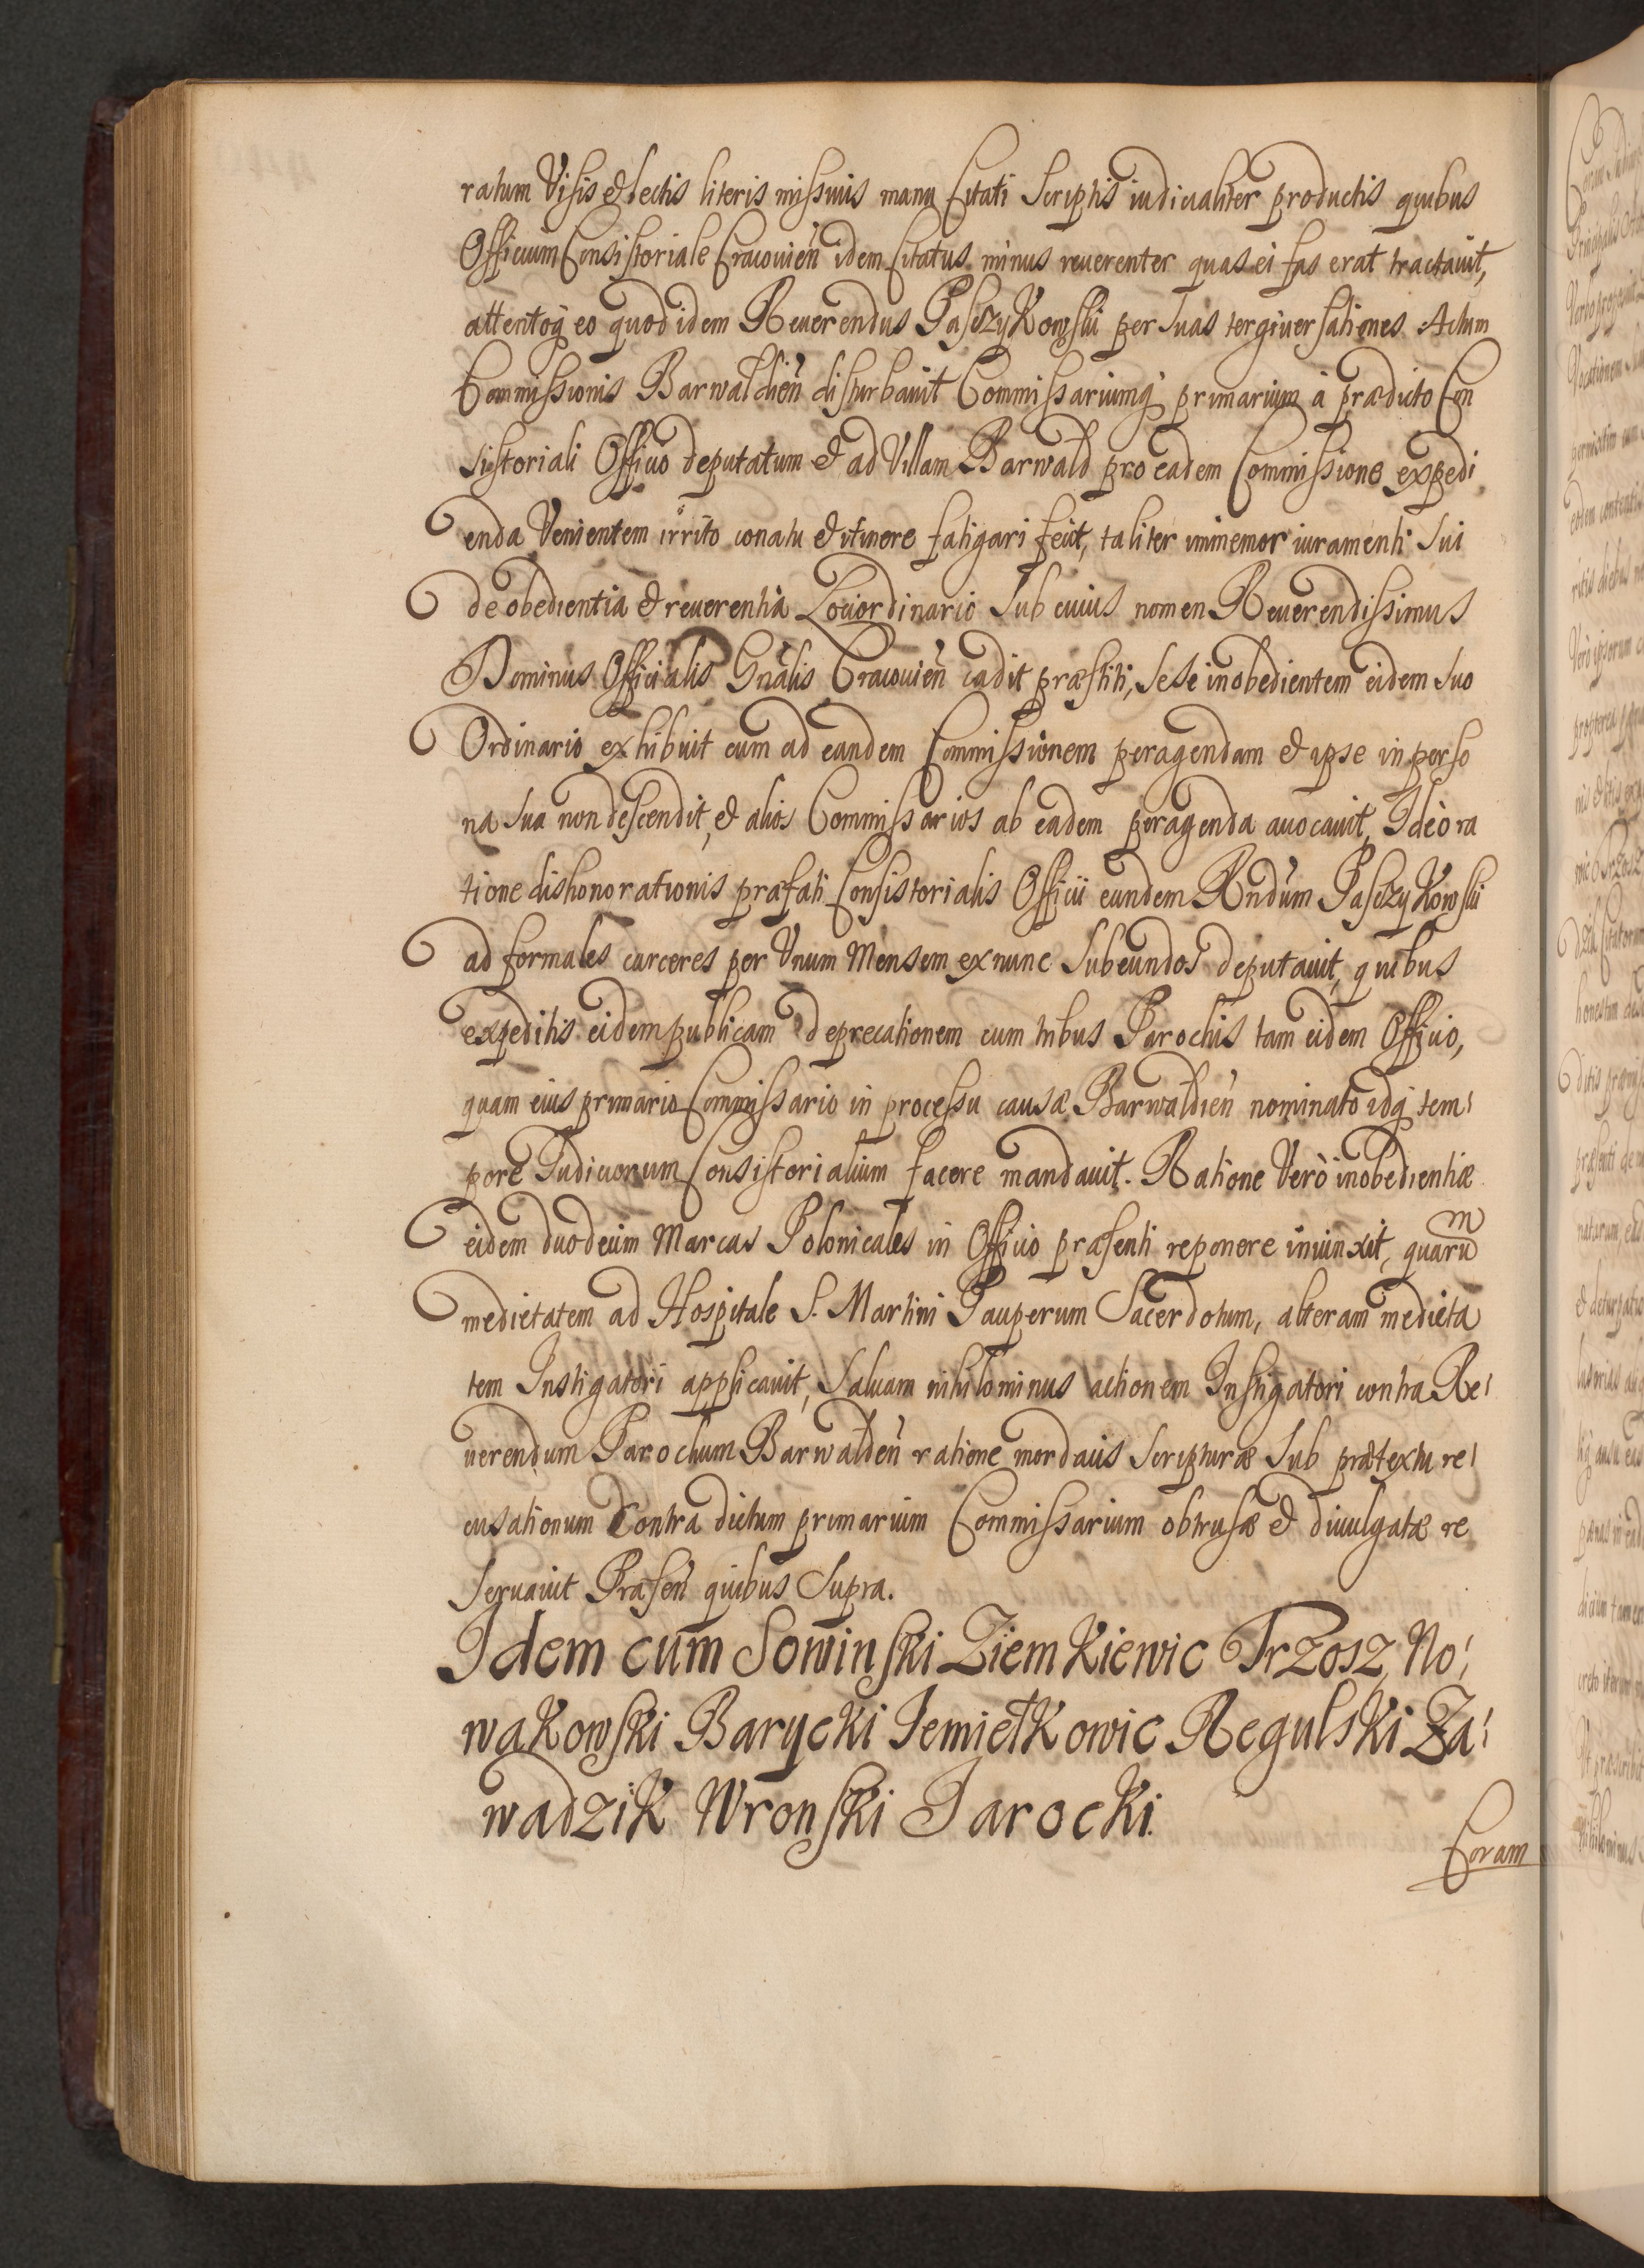 ratum Visis & lectis literis missiuis manu Citati Scriptis iudicialiter productis quibus
Officium Consistoriale Cracouien̄ idem Citatus minus reuerenter quas ei fas erat tractauit,
attentoq́ eo quod idem Reuerendus PaszyKowski per Suas tergiuersationes Actum
Commissionis Barwaldien̄ disturbauit Commissariumq́ primarium à prædicto Con
sistoriali Officio deputatum & ad Villam Barwald pro eadem Commissione expedi
enda Venientem irrito conatu & itinere fatigari fecit, taliter immemor iuramenti Sui
de obedientia & reuerentia Lociordinario Sub cuius nomen Reuerendissimus
Dominus Officialis Gn̄alis Cracouien̄ cadit præstiti, Sese inobedientem eidem Suo
Ordinario exhibuit cum ad eandem Commissionem peragendam & ipse in perso
na Sua non descendit, & alios Commissarios ab eadem peragenda auocauit, Ideò ra
tione dishonorationis præfati Consistorialis Officii eundem Rndum PaszyKowski
ad formales carceres per Vnum Mensem ex nunc Subeundos deputauit, quibus
expeditis eidem publicam deprecationem cum tribus Parochis tam eidem Officio,
quam eius primario Commissario in processu causæ Barwaldien̄ nominato idq́ tem
pore Iudiciorum Consistorialium facere mandauit. Ratione Verò inobedientiæ
eidem duodecim Marcas Polonicales in Officio præsenti reponere iniunxit, quarum
medietatem ad Hospitale S. Martini Pauperum Sacerdotum, alteram medieta
tem Instigatori applicauit, Saluam nihilominus actionem Instigatori contra Re
uerendum Parochum Barwalden̄ ratione mordacis Scripturæ Sub prætextu re
cusationum Contra dictum primarium Commissarium obtrusæ & diuulgatæ re
Seruauit Præsen̄ quibus Supra.
Idem cum Sowinski ZiemKiewic Trzosz, No
waKowski Barycki JemiełKowic Regulski Za
wadziK Wronski Jarocki.
Coram